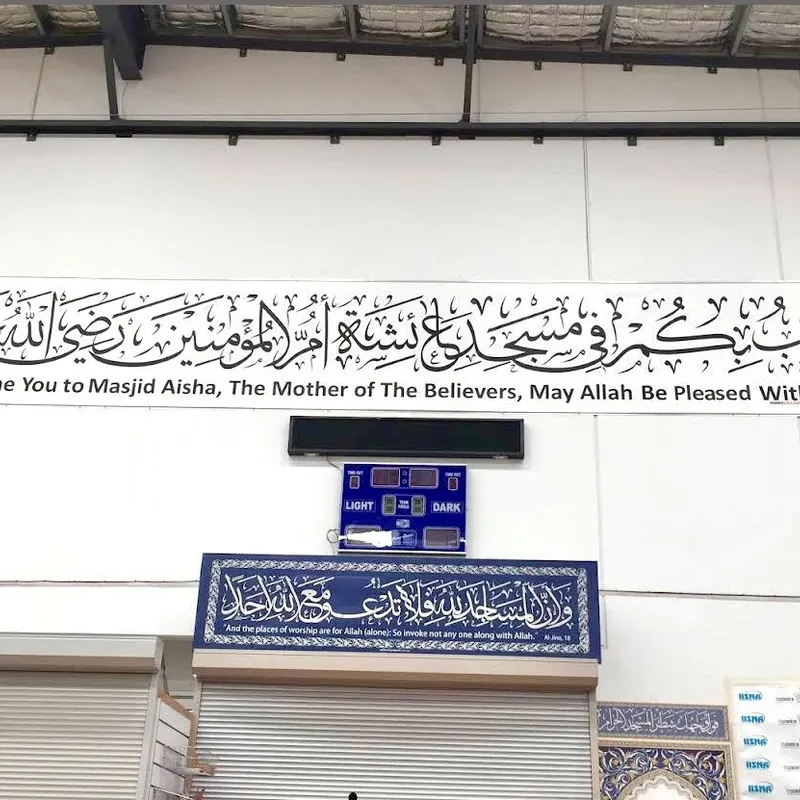 ـبُ بِكُمْ فِي مَسْجِدِ عَائِشَةَ أُمِّ الْمُؤْمِنِينَ رَضِيَ اللهُ
e You to Masjid Aisha, The Mother of The Believers, May Allah Be Pleased With
TIME OUT TIME OUT
LIGHT TEAM FOULS DARK
وَأَنَّ الْمَسَاجِدَ لِلَّهِ فَلَا تَدْعُوا مَعَ اللَّهِ أَحَدًا
"And the places of worship are for Allah (alone): So invoke not any one along with Allah." Al-Jinn, 18
فول وجهك شطر المسجد الحرام
IISNA
IISNA
IISNA
IISNA
IISNA